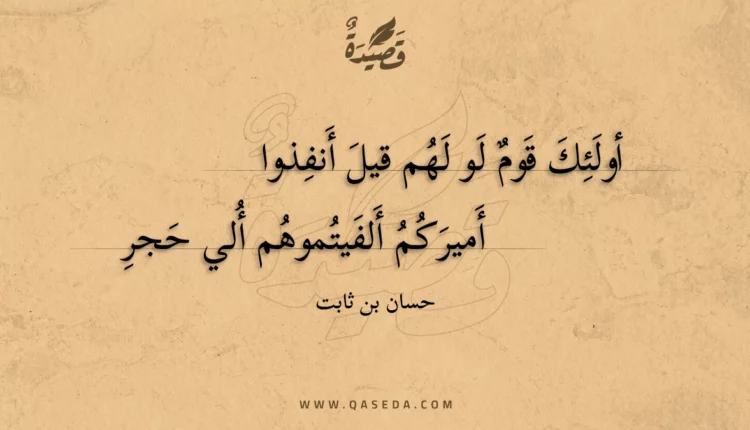 قَصِيدَةٌ
أولَئِكَ قَومٌ لَو لَهُم قيلَ أَنفِذوا
أَميرَكُمُ أَلفَيتُموهُم أُلي حَجرِ
حسان بن ثابت
WWW.QASEDA.COM